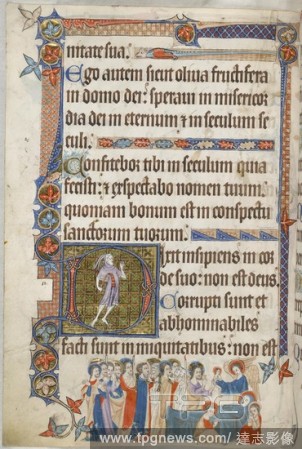 nitate sua.
Ego autem sicut oliua fructifera
in domo dei: speraui in misericor
dia dei in eternum ⁊ in seculum se
culi.
Confitebor tibi in seculum quia
fecisti: ⁊ exspectabo nomen tuum
quoniam bonum est in conspectu
sanctorum tuorum.
Dixit insipiens in cor
de suo: non est deus.
Corrupti sunt et
abhominabiles
facti sunt in iniquitatibus: non est
TPG
www.tpgnews.com / 達志影像